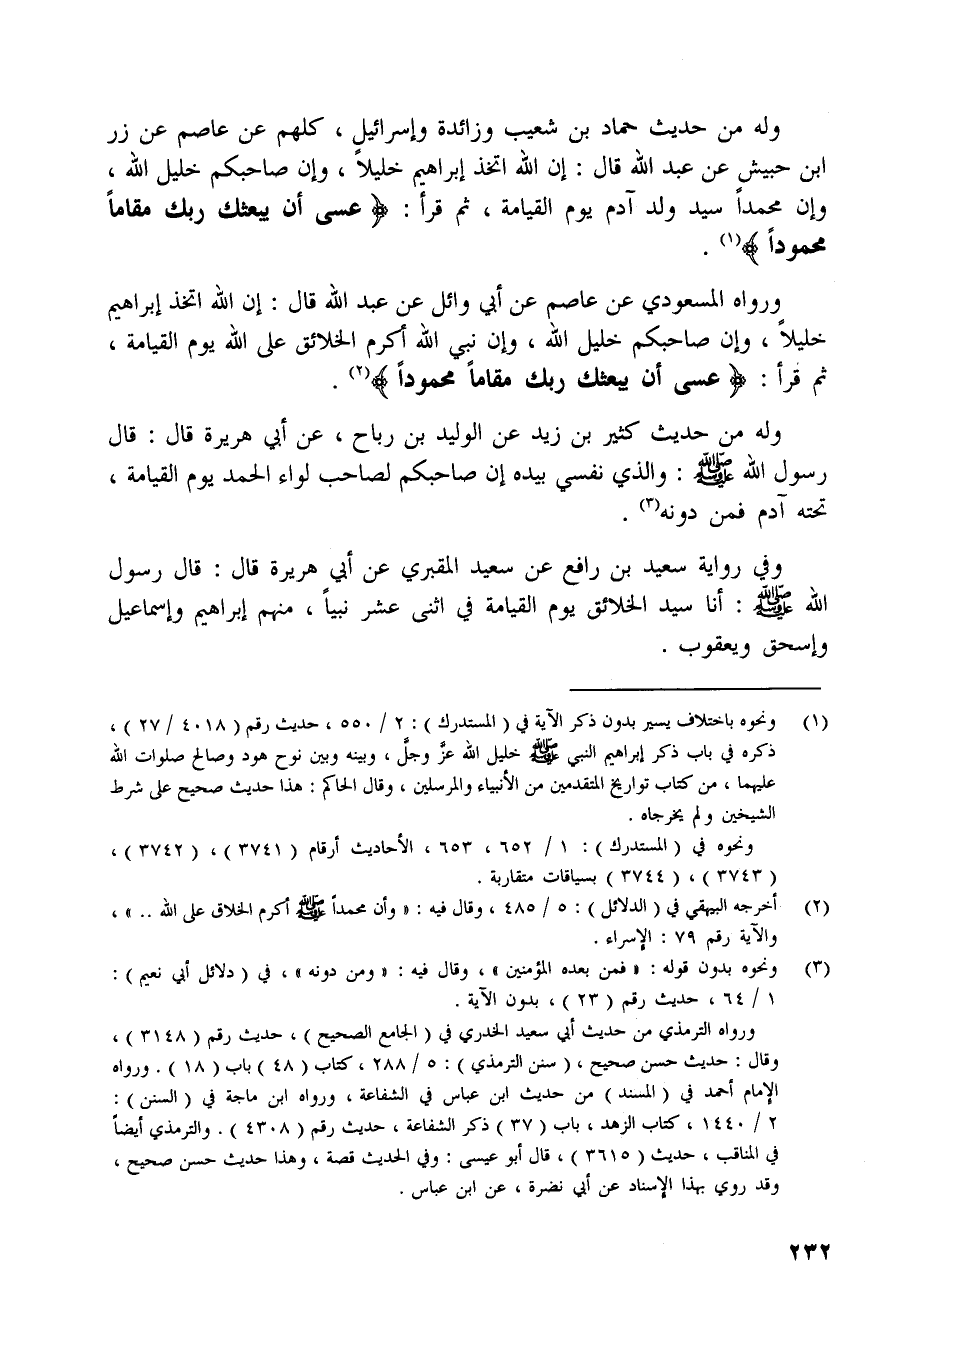 وله من حديث حماد بن شعيب وزائدة وإسرائيل ، كلهم عن عاصم عن زر
ابن حبيش عن عبد الله قال : إن الله اتخذ إبراهيم خليلاً ، وإن صاحبكم خليل الله ،
وإن محمداً سيد ولد آدم يوم القيامة ، ثم قرأ : ﴿ عسى أن يبعثك ربك مقاماً
محموداً ﴾(١) .
ورواه المسعودي عن عاصم عن أبي وائل عن عبد الله قال : إن الله اتخذ إبراهيم
خليلاً ، وإن صاحبكم خليل الله ، وإن نبي الله أكرم الخلائق على الله يوم القيامة ،
ثم قرأ : ﴿ عسى أن يبعثك ربك مقاماً محموداً ﴾(٢) .
وله من حديث كثير بن زيد عن الوليد بن رباح ، عن أبي هريرة قال : قال
رسول الله ﷺ : والذي نفسي بيده إن صاحبكم لصاحب لواء الحمد يوم القيامة ،
تحته آدم فمن دونه(٣) .
وفي رواية سعيد بن رافع عن سعيد المقبري عن أبي هريرة قال : قال رسول
الله ﷺ : أنا سيد الخلائق يوم القيامة في اثنى عشر نبياً ، منهم إبراهيم وإسماعيل
وإسحق ويعقوب .
(١) ونحوه باختلاف يسير بدون ذكر الآية في ( المستدرك ) : ٢ / ٥٥٠ ، حديث رقم ( ٤٠١٨ / ٢٧ ) ،
ذكره في باب ذكر إبراهيم النبي ﷺ خليل الله عزَّ وجلَّ ، وبينه وبين نوح هود وصالح صلوات الله
عليهما ، من كتاب تواريخ المتقدمين من الأنبياء والمرسلين ، وقال الحاكم : هذا حديث صحيح على شرط
الشيخين ولم يخرجاه .
ونحوه في ( المستدرك ) : ١ / ٦٥٢ ، ٦٥٣ ، الأحاديث أرقام ( ٣٧٤١ ) ، ( ٣٧٤٢ ) ،
( ٣٧٤٣ ) ، ( ٣٧٤٤ ) بسياقات متقاربة .
(٢) أخرجه البيهقي في ( الدلائل ) : ٥ / ٤٨٥ ، وقال فيه : « وأن محمداً ﷺ أكرم الخلاق على الله .. » ،
والآية رقم ٧٩ : الإسراء .
(٣) ونحوه بدون قوله : « فمن بعده المؤمنين » ، وقال فيه : « ومن دونه » ، في ( دلائل أبي نعيم ) :
١ / ٦٤ ، حديث رقم ( ٢٣ ) ، بدون الآية .
ورواه الترمذي من حديث أبي سعيد الخدري في ( الجامع الصحيح ) ، حديث رقم ( ٣١٤٨ ) ،
وقال : حديث حسن صحيح ، ( سنن الترمذي ) : ٥ / ٢٨٨ ، كتاب ( ٤٨ ) باب ( ١٨ ) . ورواه
الإمام أحمد في ( المسند ) من حديث ابن عباس في الشفاعة ، ورواه ابن ماجة في ( السنن ) :
٢ / ١٤٤٠ ، كتاب الزهد ، باب ( ٣٧ ) ذكر الشفاعة ، حديث رقم ( ٤٣٠٨ ) . والترمذي أيضاً
في المناقب ، حديث ( ٣٦١٥ ) ، قال أبو عيسى : وفي الحديث قصة ، وهذا حديث حسن صحيح ،
وقد روي بهذا الإسناد عن أبي نضرة ، عن ابن عباس .
٢٣٢